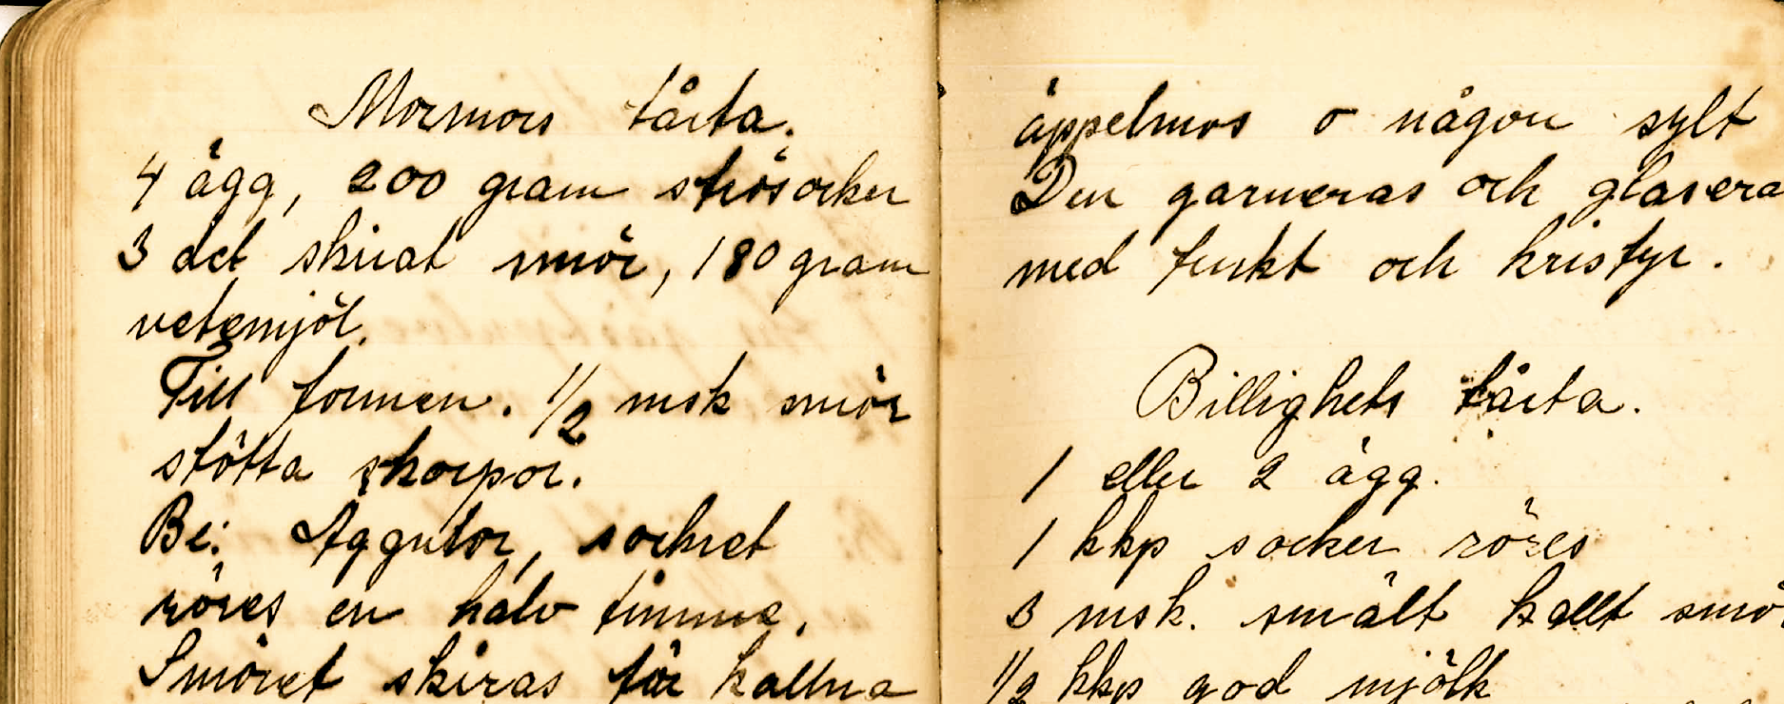 Mormors tårta.
4 ägg, 200 gram strösocker
3 del skirat smör, 180 gram
vetemjöl.
Till formen. 1/2 msk smör
stötta skorpor.
Be: Äggulor, sockret
röres en halv timme.
Smöret skiras får kallna
äppelmos o någon sylt
Den garneras och glasera
med frukt och kristyr.
Billighets tårta.
1 eller 2 ägg.
1 kkp socker röres
3 msk. smält kallt smö
1/2 kkp god mjölk